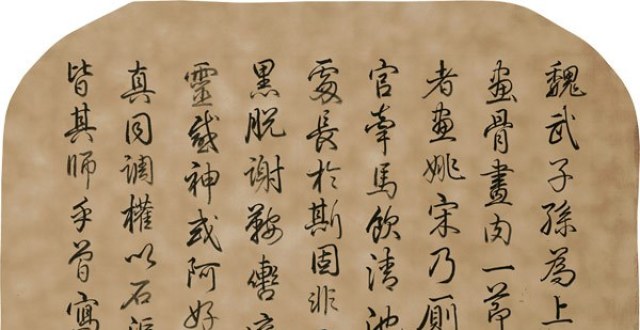 魏武子孫為上
畫骨畫肉一節
者畫姚宋乃厠
官牽馬飲清池
處長於斯固非
黑脫謝鞍轡
靈感神或阿好
真同調權以石
皆其師乎曾寫